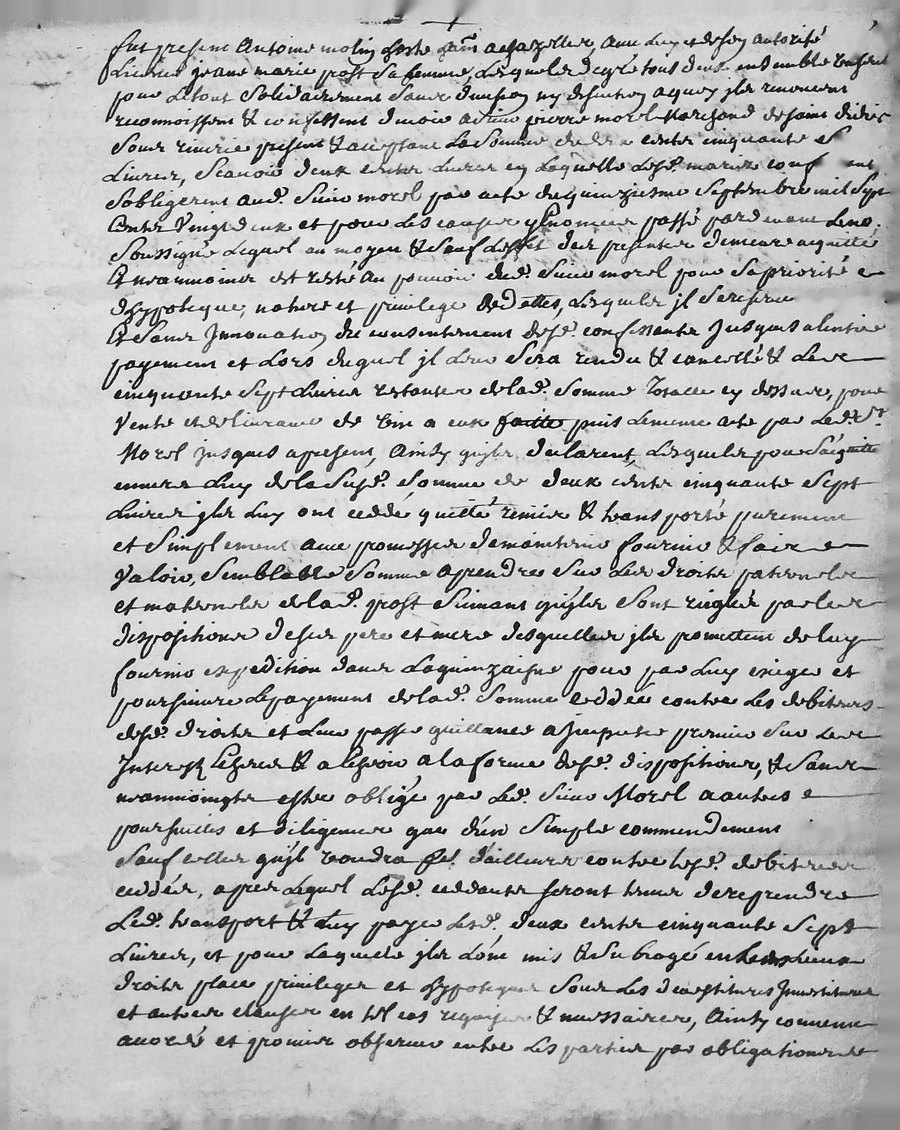 fut present Antoine molin hoste achazelles, avec luy et de son autorité
Licencie jeane marie post sa femme, Lesquels de gré tous deux ensemble
pour Le tout solidairement sans division ny discution a quoy jls renoncent
reconnoissent & confessent devoir a sieur pierre morel Marchand de saint didier
sous riverie present & acceptant La somme de deux cents cinquante sept
Livres, scavoir deux cents Livres en Laquelle Lesd. mariés
s'obligerent aud. sieur morel par acte du quinziesme septembre mil sept
cents vingt deux et pour Les causes y enoncées passé pardevant Le no.re
soussigné Lequel au moyen & sauf L'effet des presentes demeure acquitté
& neanmoins est resté au pouvoir dud. sieur morel pour sa priorité
d'hypoteque, nature et privilege de dettes, Lesquels jl se reserve
& sans Innovation du consentement desd. confessants jusques a L'entier
payement et Lors duquel jl Leur sera rendu & cancellé & Les
cinquante sept Livres restantes de lad. somme totalle cy dessus, pour
vente et delivrance de vin a eux faitte puis Le meme acte par Led. Sr.
Morel jusques apresent, Ainsy qu'jls declarent, Lesquels pour s'acquitter
envers Luy de la susd. somme de deux cents cinquante sept
Livres jls Luy ont ceddé quitté remis & transporté purement
et simplement avec promesse de maintenir fournir & faire
valoir, semblable somme a prendre sur Les droits paternels
et maternels de lad. post suivant qu'jls sont reiglés par les
dispositions de ses pere et mere desquelles jls promettent de luy
fournir expedition dans La quinzaine pour par Luy exiger et
poursuivre Le payement de lad. somme ceddée contre Les debiteurs
desd. droits et Leur passer quittance a jmputer premier sur Les
Interets & a la forme desd. dispositions, & sans
neanmoings estre obligé par Led. sieur Morel a autres
poursuittes et diligences que d'un simple commendement
sauf celles qu'jl voudra d'ailleurs contre Lesd. debiteurs
ceddés, apres Lequel Lesd. ceddants seront tenus de reprendre
Led. transport & Luy payer Lesd. deux cents cinquante sept
Livres, et pour Laquelle jls L'ont mis & subrogé en Leurs Lieux
droits place privileges et hypoteques sous Les devestitures Jnvestitures
et autres clauses en tel cas requises & necessaires, Ainsy convenu
accordé et promis observer entre Les parties par obligation de